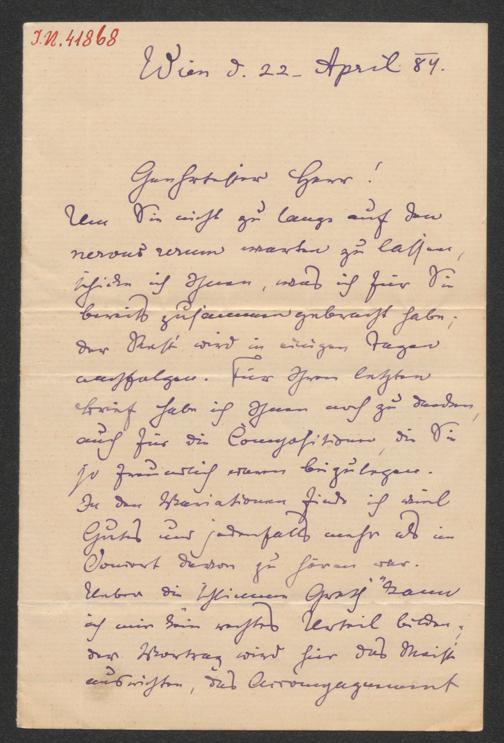 I.N. 41868
Wien d. 22. April 84.
Geehrtester Herr!
Um Sie nicht zu lange auf den
nervus rerum warten zu lassen,
schicke ich Ihnen, was ich für Sie
bereits zusammengebracht habe;
der Rest wird in einigen Tagen
nachfolgen. Für Ihren letzten
Brief habe ich Ihnen noch zu danken,
auch für die Compositionen, die Sie
so freundlich waren beizulegen.
In den Variationen finde ich viel
Gutes und jedenfalls mehr als im
Concert davon zu hören war.
Ueber die "Schlimme Greth" kann
ich mir kein rechtes Urteil bilden;
der Vortrag wird hier das Meiste
ausrichten, das Accompagnement